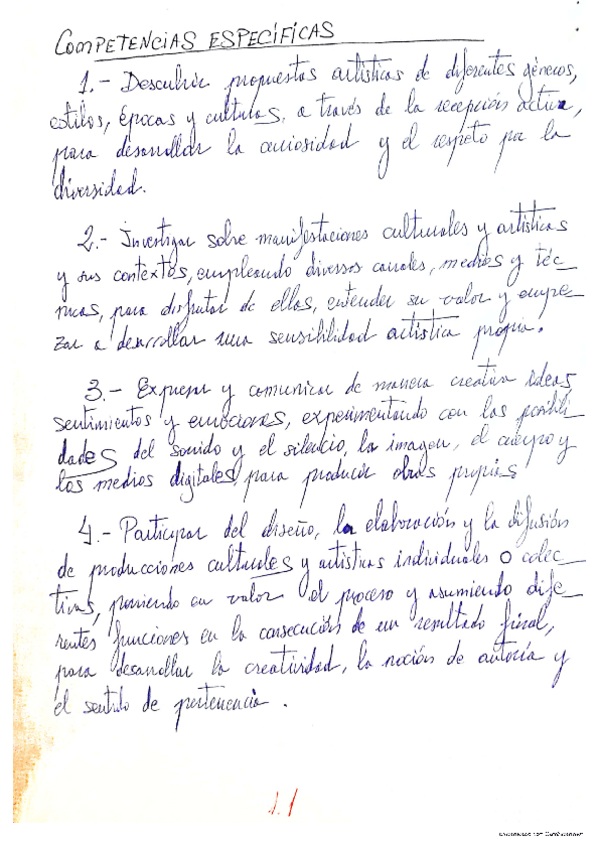 COMPETENCIAS ESPECÍFICAS
1.- Descubrir propuestas artísticas de diferentes géneros,
estilos, épocas y culturas, a través de la recepción activa,
para desarrollar la curiosidad y el respeto por la
diversidad.
2.- Investigar sobre manifestaciones culturales y artísticas
y sus contextos, empleando diversos canales, medios y téc-
nicas, para disfrutar de ellas, entender su valor y empe-
zar a desarrollar una sensibilidad artística propia.
3.- Expresar y comunicar de manera creativa ideas,
sentimientos y emociones, experimentando con las posibili-
dades del sonido y el silencio, la imagen, el cuerpo y
los medios digitales, para producir obras propias
4.- Participar del diseño, la elaboración y la difusión
de producciones culturales y artísticas individuales o colec-
tivas, poniendo en valor el proceso y asumiendo dife-
rentes funciones en la consecución de un resultado final,
para desarrollar la creatividad, la noción de autoría y
el sentido de pertenencia.
1.1